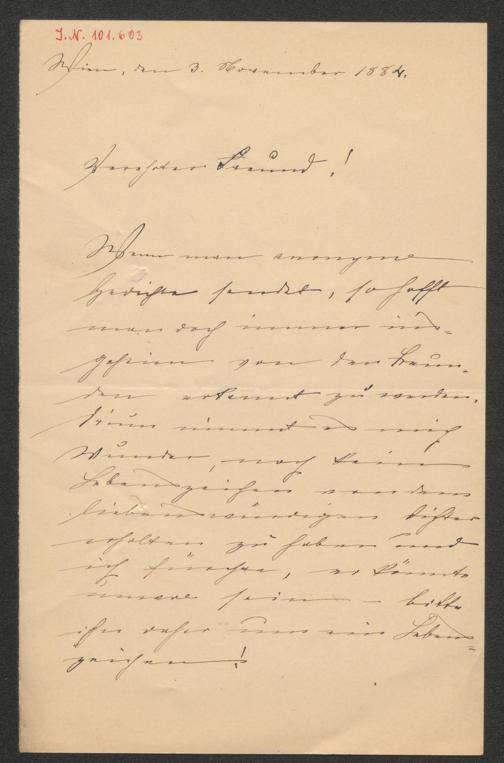 J.N. 101.603
Wien, den 3. November 1884.
Verehrter Freund!
Wenn man anonyme
Gedichte sendet, so hofft
man doch immer ins-
geheim von den Freun-
den erkannt zu werden.
D'rum nimmt es mich
Wunder, noch kein
Lebenszeichen von dem
liebenswürdigen Dichter
erhalten zu haben und
ich fürchte, er könnte
unwohl sein – bitte
ihn daher um ein Lebens-
zeichen!